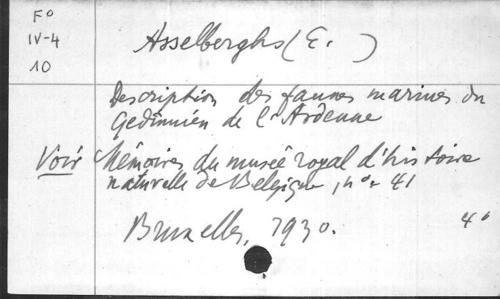 F°
IV-4
10
Asselberghs (E. )
Description des faunes marines du
Gedinnien de l'Ardenne
Voir Mémoires du musée royal d'histoire
naturelle de Belgique, n° 41
Bruxelles, 1930.
4°